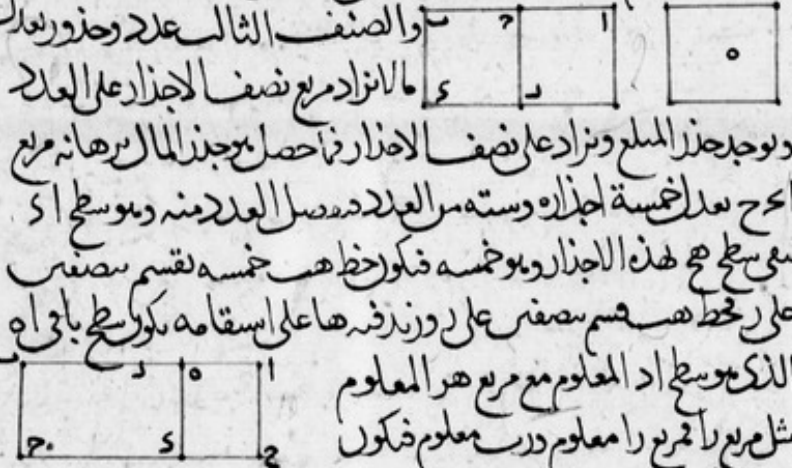 والصنف الثالث عدد وجذور تعدل
مالا نزاد مربع نصف الاجذار على العدد
ويوجد جذر المبلغ ونزاد على نصف الاجذار فما حصل هو جذر المال برهانه مربع
ا ب ح ج يعدل خمسة اجذاره وستة من العدد العدد منه وهو سطح ا ء
سطح هج لهذه الاجذار وهو خمسة فيكون خط هب خمسة نقسم بنصفين
على ر فخط هب قسم بنصفين على ر وزيد فيه ها على استقامة يكون سطح با في اه
الذي هو سطح اد المعلوم مع مربع هر المعلوم
مثل مربع را فمربع را معلوم ورب معلوم فيكون